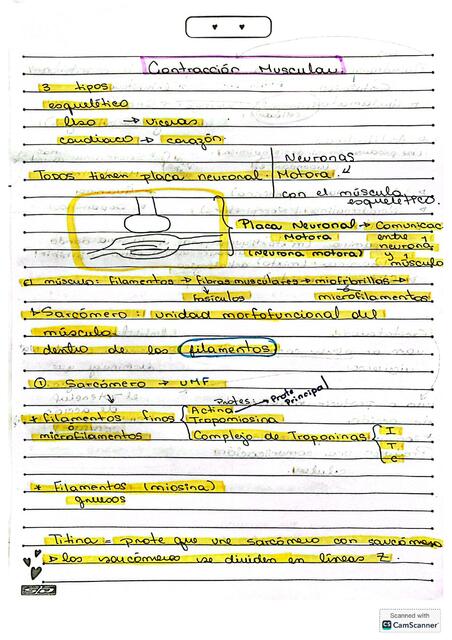 Contracción Muscular.
3 tipos
esquelético
liso → viceras
cardiaco → corazón
Todos tienen placa neuronal.
Neuronas
Motora.
con el músculo
esquelético.
Placa Neuronal → Comunicac
Motora entre
(Neurona motora) neurona
y
músculo
El músculo: filamentos → fibras musculares → miofibrillas →
fasículos microfilamentos.
Sarcómero: unidad morfofuncional del
músculo
dentro de los filamentos
① Sarcómero → UMF
Protes: → Prote
Principal
* Filamentos finos Actina
ó Tropomiosina
microfilamentos Complejo de Troponinas I
T
C
* Filamentos (miosina)
gruesos
Titina = prote que une sarcómero con sarcómero
los sarcómeros se dividen en líneas Z.
Scanned with
CS CamScanner